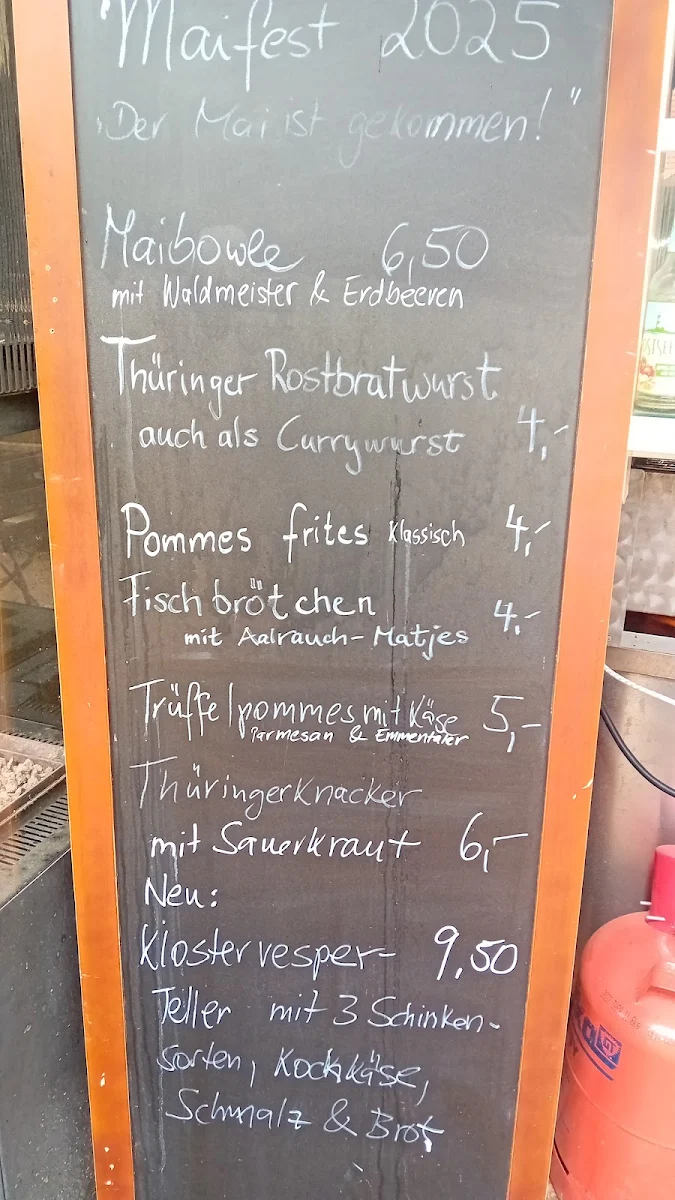 "Maifest 2025
„Der Mai ist gekommen!"
Maibowle 6,50
mit Waldmeister & Erdbeeren
Thüringer Rostbratwurst
auch als Currywurst 4,-
Pommes frites klassisch 4,-
Fischbrötchen 4,-
mit Aalrauch-Matjes
Trüffelpommes mit Käse 5,-
Parmesan & Emmentaler
Thüringer Knacker
mit Sauerkraut 6,-
Neu:
Klostervesper- 9,50
Teller mit 3 Schinken-
sorten, Kochkäse,
Schmalz & Brot